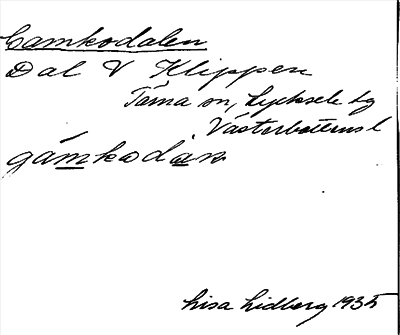 Gamkodalen
Dal V Klippen
Tärna sn, Lycksele lg
Västerbottens l
gámkodan
Lisa Lidberg 1935